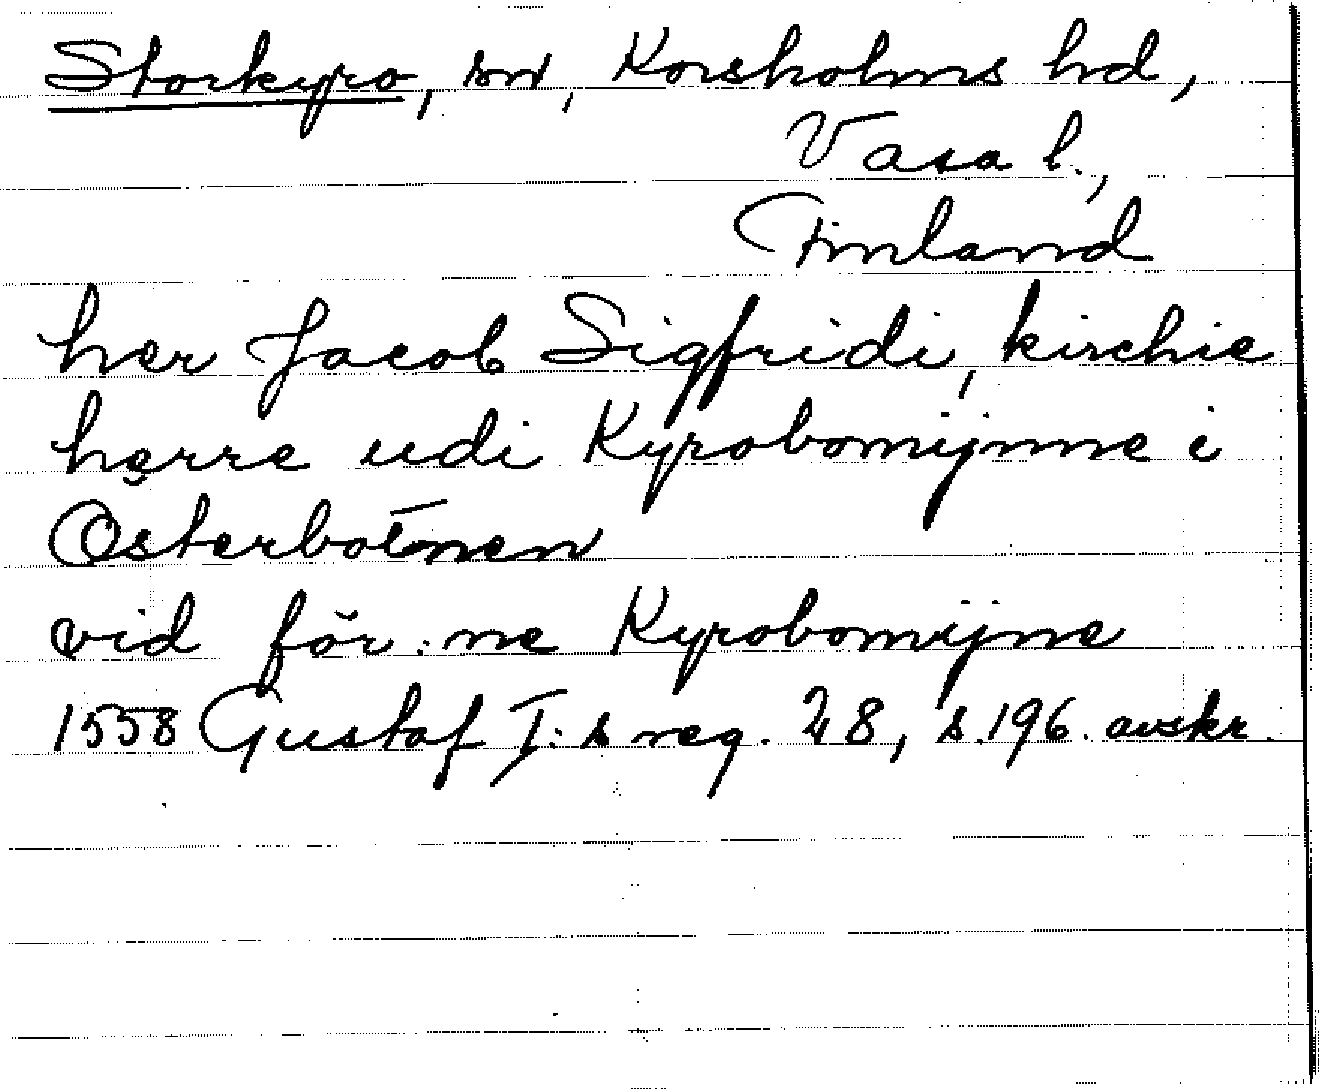 Storkyro, sn, Korsholms hd,
Vasa l.,
Finland
her Jacob Sigfridi, kirchie
herre udi Kyrobomÿnne i
Osterbotnen
vid för:ne Kyrobomÿne
1558 Gustaf I:s reg. 28, s.196. avskr.